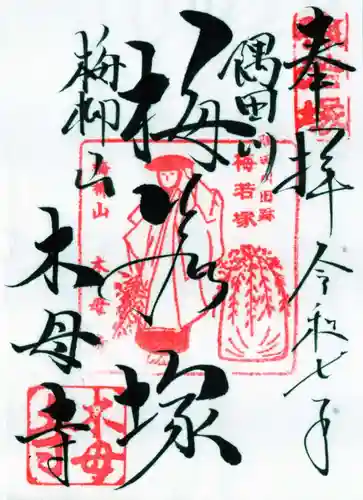 奉拝 令和七年
隅田川
梅若塚
梅柳山
木母寺
梅若塚
梅柳山
木母寺
木母寺